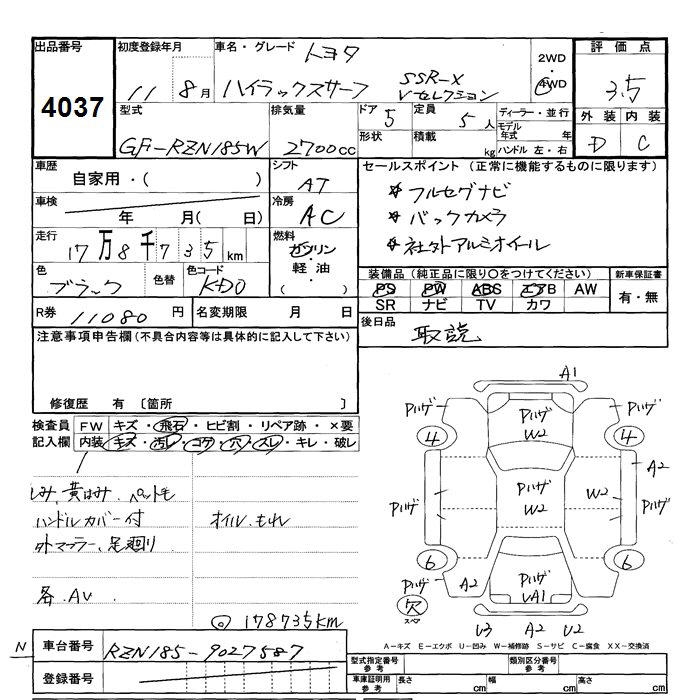 出品番号 初度登録年月 車名・グレード トヨタ 2WD 評価点
4037 11 8月 ハイラックスサーフ SSR-X Vセレクション 4WD 3.5
型式 排気量 ドア 5 定員 5人 ディーラー・並行 外装 内装
GF-RZN185W 2700cc 形状 積載 kg モデル年式 年 D C
ハンドル 左・右
車歴 自家用・( ) シフト AT セールスポイント (正常に機能するものに限ります)
車検 年 月( 日) 冷房 AC ☆フルセグナビ
☆バックカメラ
走行 17万8千735km 燃料 ガソリン・軽油・( ) ☆社外アルミホイール
色 ブラック 色替 色コード KD0 装備品 (純正品に限り○をつけてください) 新車保証書
PS PW ABS エアB AW 有・無
SR ナビ TV カワ
R券 11080円 名変期限 月 日 後日品 取説
注意事項申告欄(不具合内容等は具体的に記入して下さい)
修復歴 有 〔箇所 〕
検査員 FW キズ・飛石・ヒビ割・リペア跡・×要
記入欄 内装 キズ・汚レ・コゲ・穴・スレ・キレ・破レ
しみ、黄ばみ、ペット毛
ハンドルカバー付 オイルもれ
外マフラー、足廻り
各.AU
◎178735km
A1
Pハゲ Pハゲ Pハゲ
4 W2 4
A2
Pハゲ Pハゲ W2 W2 Pハゲ
6 6
Pハゲ A2 Pハゲ VA1 A2 Pハゲ
欠 スペア
U3 A2 U2
A-キズ E-エクボ U-凹み W-補修跡 S-サビ C-腐食 XX-交換済
N 車台番号 RZN185-9027587 型式指定番号 参考 類別区分番号 参考
登録番号 車庫証明用 参考 長さ cm 幅 cm 高さ cm